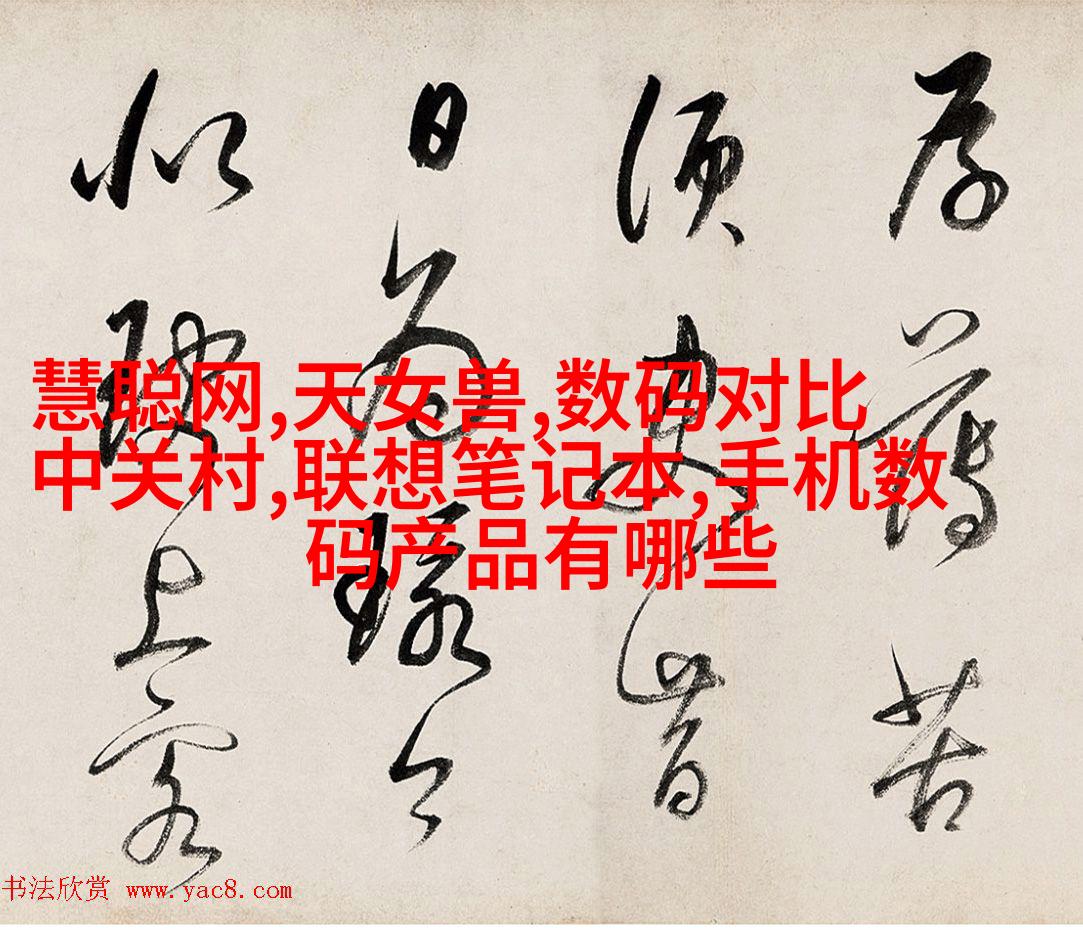 慧聪网,天女兽,数码对比
中关村,联想笔记本,手机数
码产品有哪些
薄苦
须臾皆
日为
似上客
书法欣赏 www.yac8.com